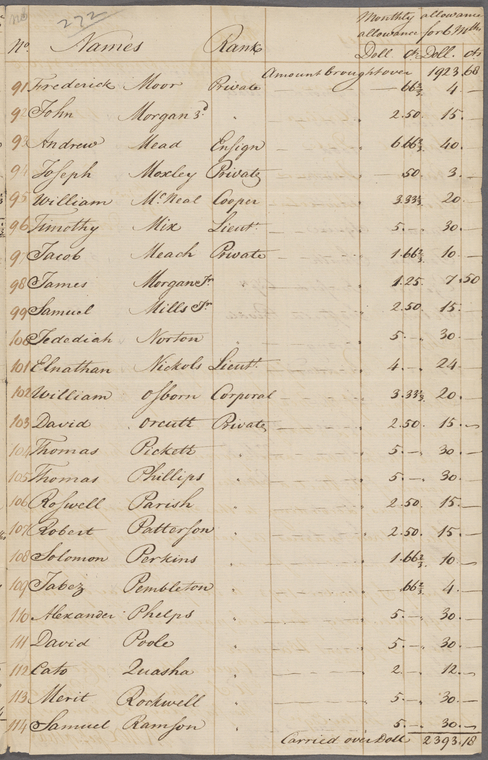 272
Monthly allowance
No Names Rank allowance for 6 Mths
Doll. Cts Doll. Cts
Amount brought over 1923.68
91 Frederick Moor Private — .66⅔ 4.—
92 John Morgan 3d . 2.50 15.—
93 Andrew Mead Ensign 6.66⅔ 40.—
94 Joseph Moxley Private .50 3.—
95 William McNeal Cooper 3.33⅓ 20.—
96 Timothy Mix Lieut. 5.— 30.—
97 Jacob Meach Private 1.66⅔ 10.—
98 James Morgan Jr . 1.25 7.50
99 Samuel Mills Jr . 2.50 15.—
100 Jedediah Norton . 5.— 30.—
101 Elnathan Nickols Lieut. 4.— 24.—
102 William Osborn Corporal 3.33⅓ 20.—
103 David Orcutt Private 2.50 15.—
104 Thomas Pickett . 5.— 30.—
105 Thomas Phillips . 5.— 30.—
106 Roswell Parish . 2.50 15.—
107 Robert Patterson . 2.50 15.—
108 Solomon Perkins . 1.66⅔ 10.—
109 Jabez Pembleton . .66⅔ 4.—
110 Alexander Phelps . 5.— 30.—
111 David Poole . 5.— 30.—
112 Cato Quasha . 2.— 12.—
113 Merit Rockwell . 5.— 30.—
114 Samuel Ramson . 5.— 30.—
Carried over Doll. 2393.18